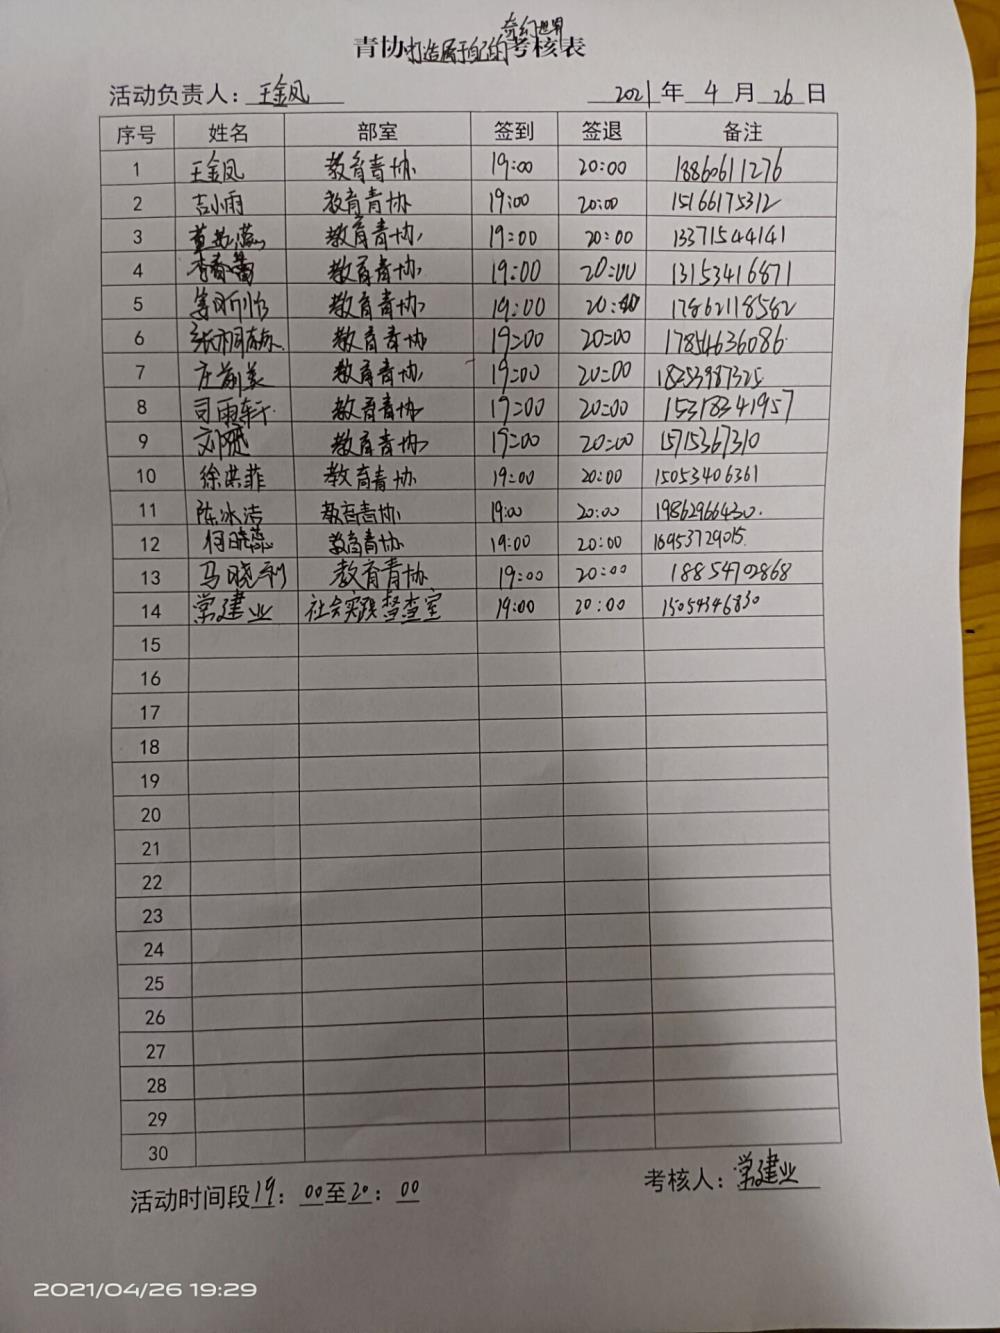 奇幻世界
青协打造属于自己的考核表
活动负责人：王金凤 2021年4月26日
序号 姓名 部室 签到 签退 备注
1 王金凤 教育青协 19:00 20:00 18860611276
2 吉小雨 教育青协 19:00 20:00 15166175312
3 教育青协 19:00 20:00 13371544141
4 李春蕾 教育青协 19:00 20:00 13153416871
5 教育青协 19:00 20:00 17862118562
6 教育青协 19:00 20:00 17854636086
7 教育青协 19:00 20:00 18253987325
8 司雨轩 教育青协 19:00 20:00 15318341957
9 教育青协 19:00 20:00 15715367310
10 徐洪菲 教育青协 19:00 20:00 15053406361
11 陈冰洁 教育青协 19:00 20:00 19862966430.
12 何晓蕊 教育青协 19:00 20:00 16953729015
13 马晓利 教育青协 19:00 20:00 18854702868
14 常建业 社会实践督查室 19:00 20:00 15054346830
15
16
17
18
19
20
21
22
23
24
25
26
27
28
29
30
活动时间段19：00至20：00 考核人：常建业
2021/04/26 19:29